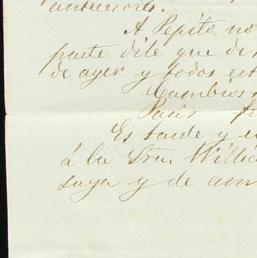 anteriores.
A Pepito no
parte dile que de
de ayer y todos est
Cambios
Paris fr
Es tarde y
á la Sra. Willi
suya y de am